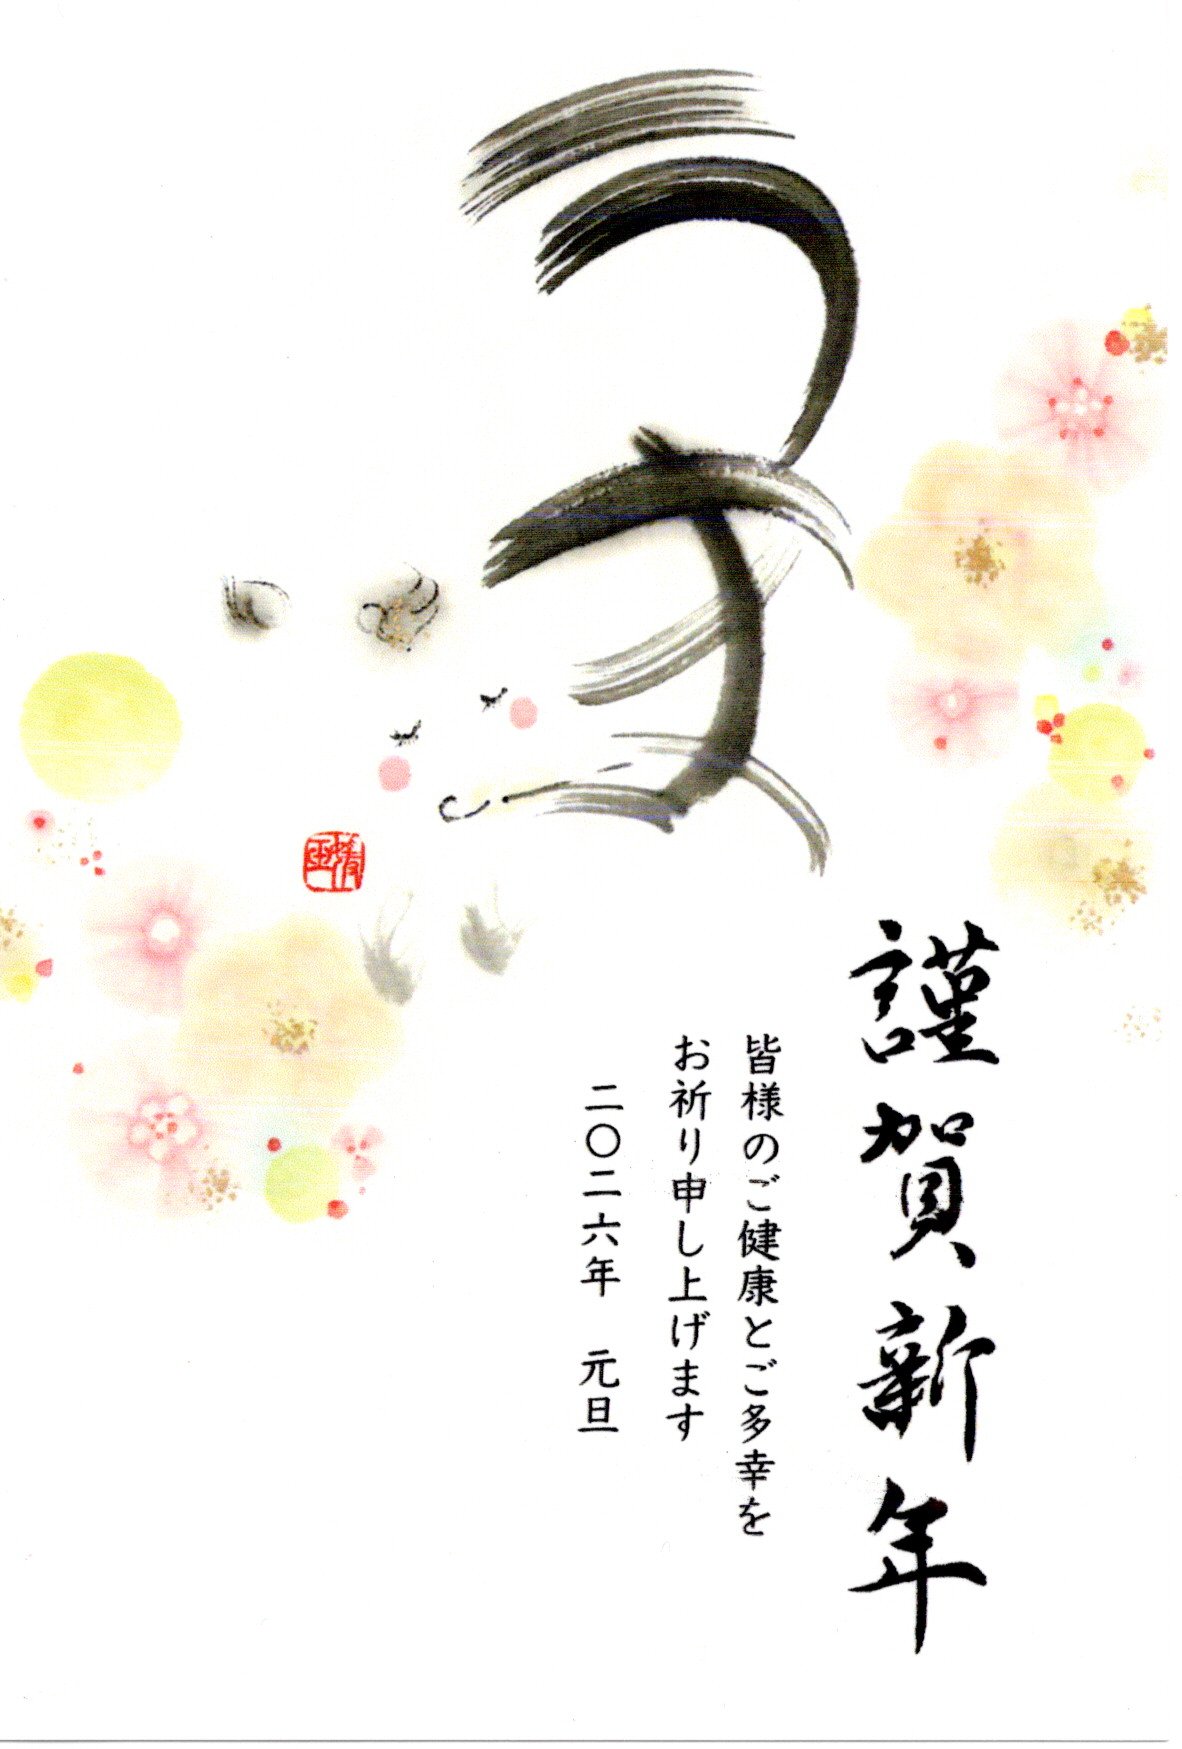 謹賀新年
皆様のご健康とご多幸を
お祈り申し上げます
二〇二六年　元旦